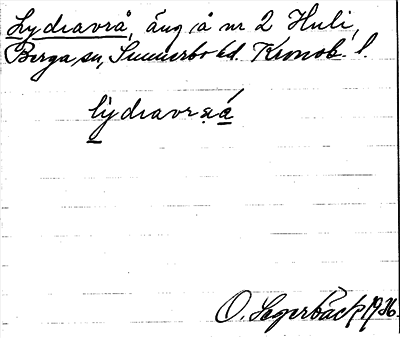 Lydiavrå, äng å nr 2 Huli,
Berga sn, Sunnerbo hd. Kronob. l.
lydiavrå
O. Segerbäck 1936.